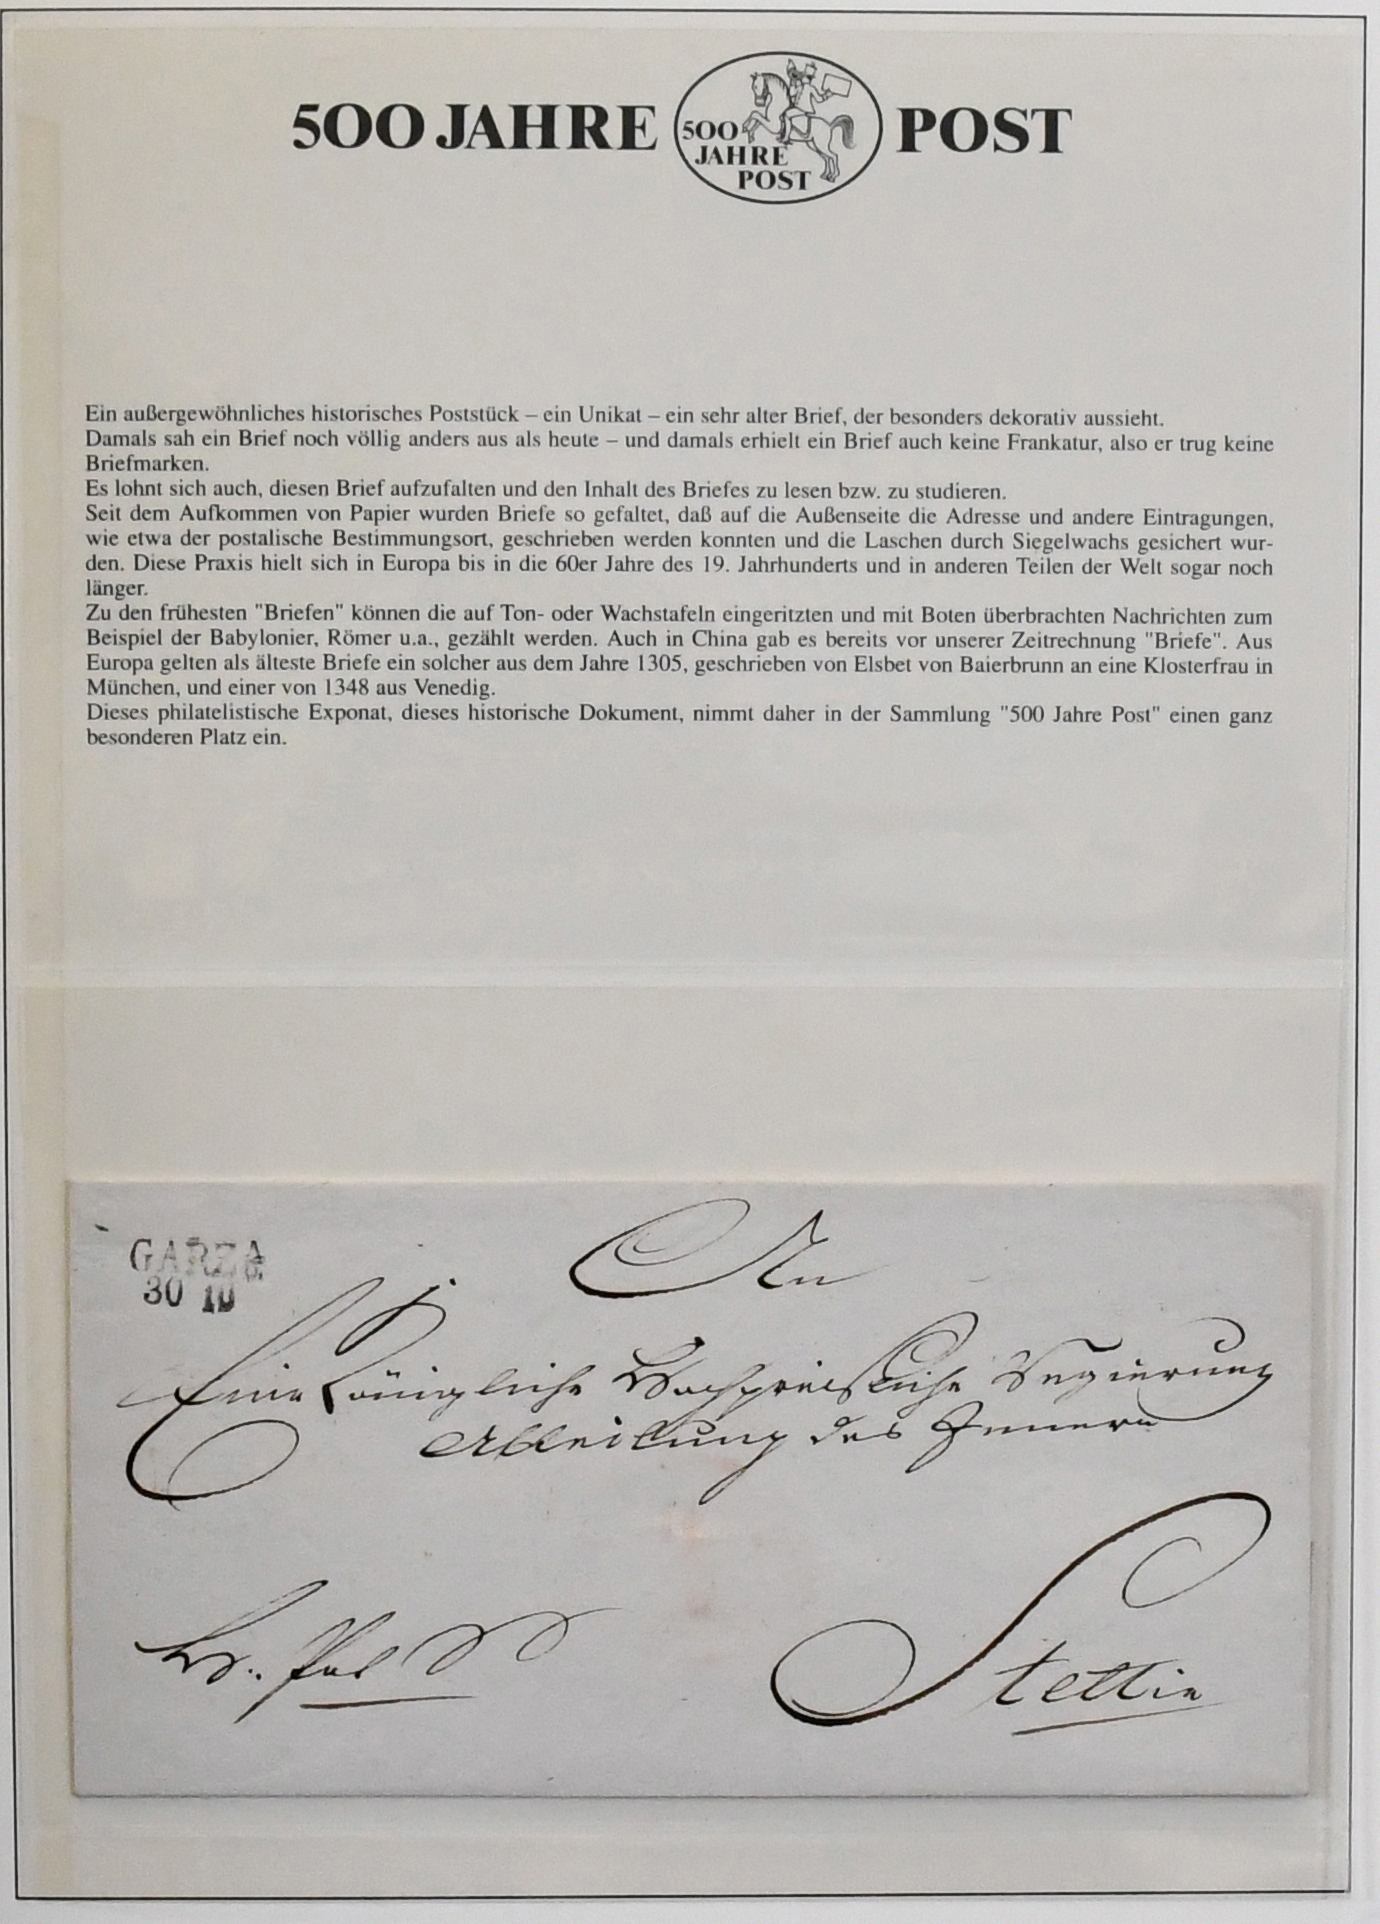 500 JAHRE POST
500
JAHRE
POST
Ein außergewöhnliches historisches Poststück – ein Unikat – ein sehr alter Brief, der besonders dekorativ aussieht.
Damals sah ein Brief noch völlig anders aus als heute – und damals erhielt ein Brief auch keine Frankatur, also er trug keine
Briefmarken.
Es lohnt sich auch, diesen Brief aufzufalten und den Inhalt des Briefes zu lesen bzw. zu studieren.
Seit dem Aufkommen von Papier wurden Briefe so gefaltet, daß auf die Außenseite die Adresse und andere Eintragungen,
wie etwa der postalische Bestimmungsort, geschrieben werden konnten und die Laschen durch Siegelwachs gesichert wur-
den. Diese Praxis hielt sich in Europa bis in die 60er Jahre des 19. Jahrhunderts und in anderen Teilen der Welt sogar noch
länger.
Zu den frühesten "Briefen" können die auf Ton- oder Wachstafeln eingeritzten und mit Boten überbrachten Nachrichten zum
Beispiel der Babylonier, Römer u.a., gezählt werden. Auch in China gab es bereits vor unserer Zeitrechnung "Briefe". Aus
Europa gelten als älteste Briefe ein solcher aus dem Jahre 1305, geschrieben von Elsbet von Baierbrunn an eine Klosterfrau in
München, und einer von 1348 aus Venedig.
Dieses philatelistische Exponat, dieses historische Dokument, nimmt daher in der Sammlung "500 Jahre Post" einen ganz
besonderen Platz ein.
GARZ A
30 10
An
Eine Königliche Hochpreisliche Regierung
Abteilung des Innern
Stettin